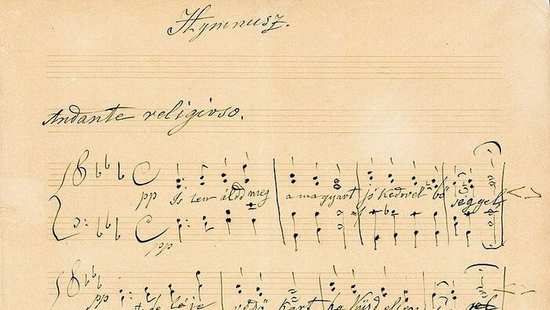 Hymnusz.
Andante religioso.
Is ten áldd meg a magyart jó kedvvel bő séggel
pp
pp
pp védő kart ha küzd ellen